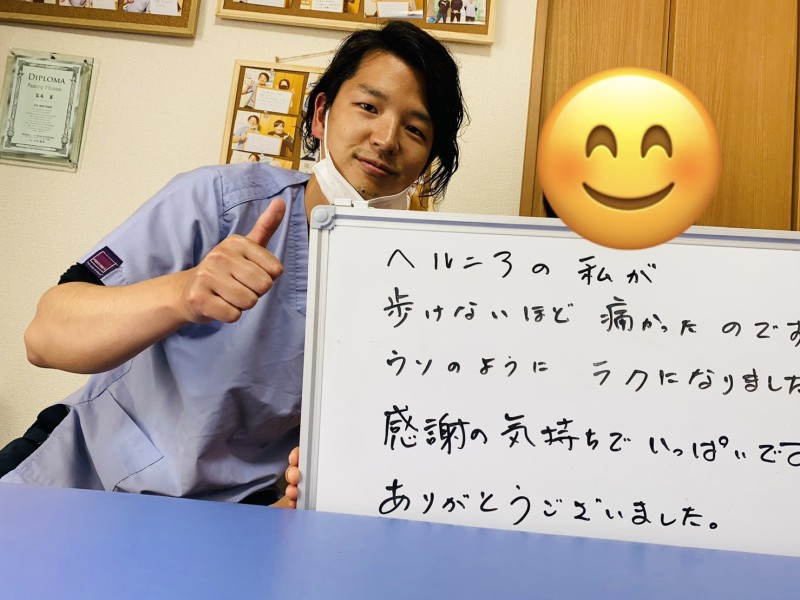 DIPLOMA
ヘルニアの 私が
歩けないほど 痛かったのです
ウソのように ラクになりました
感謝の気持ちで いっぱいです
ありがとうございました。